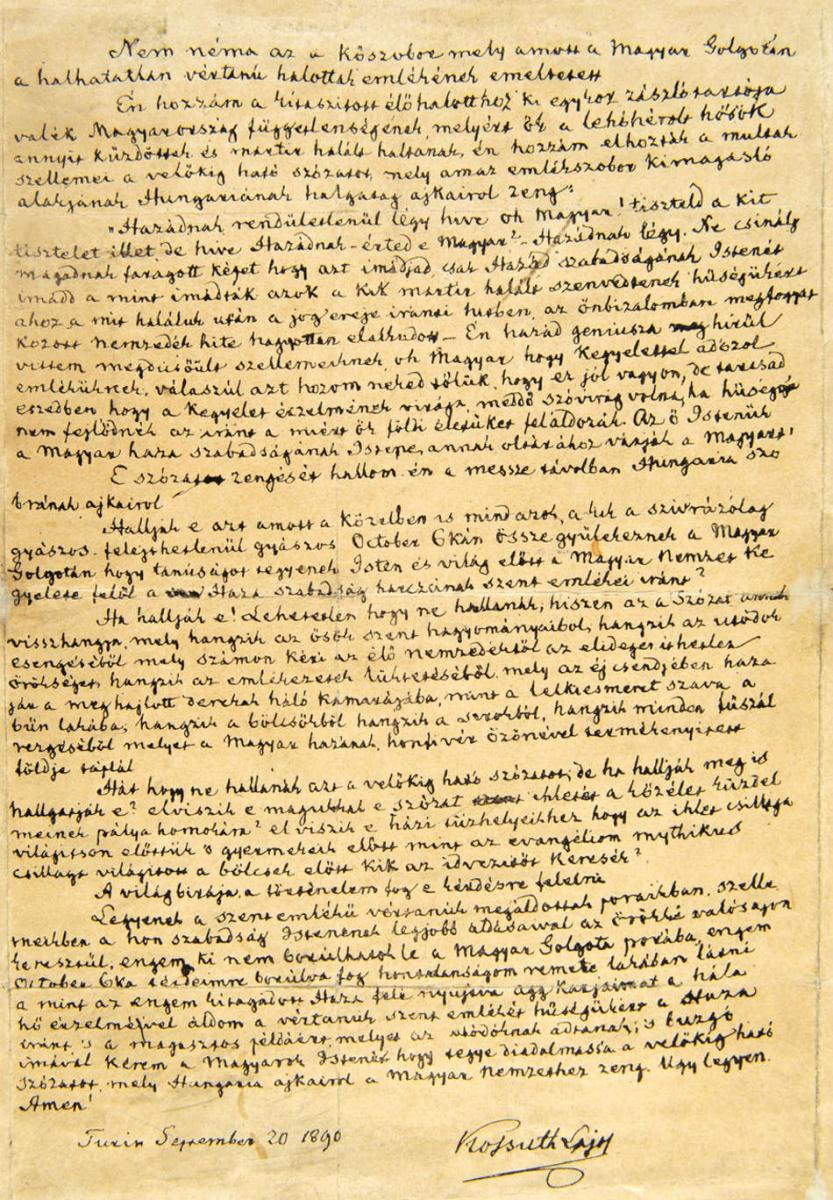 Nem néma az a Kőszobor mely amott a Magyar Golgotán
a halhatatlan vértanú halottak emlékének emeltetett
Én hozzám a kitaszitott élő halotthoz ki egykor zászlótartója
valék Magyarország függetlenségének, melyért ők a lehóhérolt hősök
annyit küzdöttek és martir halált haltanak, én hozzám elhozták a multak
szellemei a velőkig ható szózatot, mely amaz emlékszobor kimagasló
alakjának Hungariának halgatag ajkairol zeng:
"Hazádnak rendületlenül légy hive oh Magyar! tiszteld a kit
tisztelet illet, de hive Hazádnak – érted e Magyar? – Hazádnak légy. Ne csinálj
magadnak faragott képet hogy azt imádjad, csak Hazád szabadságának Istenét
imádd a mint imádták azok a kik martir halált szenvedtenek hűségükért
ahoz a mit haláluk után a jog ereje iránti hitben, az önbizalomban megfogyat
kozott nemzedék hite hagyottan elalkudott – Én hazád geniusza meghirül
vittem megdicsőült szellemeiknek, oh Magyar hogy Kegyelettel adószol
emléküknek, válaszúl azt hozom neked tőlük, hogy ez jól vagyon, de tartsad
eszedben hogy a Kegyelet érzelmének virága meddő szóvirág volna, ha hűséggé
nem fejlődnék az iránt a miért ők földi életüket feláldozák. Az ő Istenük
a Magyar haza szabadságának Istene, annak oltárához várják a Magyart!
E szózatot zengését hallom én a messze távolban Hungaria szo
brának ajkairol
Hallják e azt amott a közelben is mind azok, a kik a szivrázólag
gyászos – felejthetlenül gyászos October 6kán össze gyülekeznek a Magyar
Golgotán hogy tanúságot tegyenek Isten és világ előtt a Magyar Nemzet Ke
gyelete felől a Haza szabadság harczának szent emlékei iránt?
Ha hallják e! Lehetetlen hogy ne hallanák, hiszen az a Szózat annak
visszhangja, mely hangzik az ősök szent hagyományaibol, hangzik az utódok
esengéséből mely számon kéri az élő nemzedéktől az elidegenithetlen
örökséget, hangzik az emlékezetek lüktetéséből mely az éj csendjében haza
jár a meghajlott derekak háló kamarájába, mint a lelkiesmeret szava a
bün lakába; hangzik a bölcsőkből hangzik a sirokból, hangzik minden füszál
rezgéséből melyet a Magyar hazának, honfivér özönével termékenyitett
földje táplál
Hát hogy ne hallanák azt a velőkig ható szózatot; de ha hallják meg is
hallgatják e? elviszik e magukkal e szózat ihletét a közélet küzdel
meinek pálya homokára? elviszik e házi tüzhelyeikhez hogy az ihlet csillaga
világitson előttük 's gyermekeik előtt mint az evangéliom mythikus
csillaga világitott a bölcsek előtt kik az idvezitőt keresék?
A világ birája, a történelem fog e kérdésre felelni
Legyenek a szent emlékü vértanuk megáldottak poraikban, szelle
meikben a hon szabadság Istenének legjobb áldásaival az örökké valóságon
keresztül, engem ki nem borulhatok le a Magyar Golgota porába, engem
October 6ka térdeimre borúlva fog hontalanságom remete lakában látni
a mint az engem kitagadott Haza felé nyujtva agg karjaimat a hála
hő érzelmével áldom a vértanuk szent emlékét hűségükért a Haza
iránt 's a magasztos példáért, melyet az utódoknak adtanak; 's buzgó
imával kérem a Magyarok Istenét hogy tegye diadalmassá a velőkig ható
szózatot, mely Hungaria ajkairol a Magyar Nemzethez zeng. Ugy legyen.
Amen!
Turin September 20 1890
Kossuth Lajos